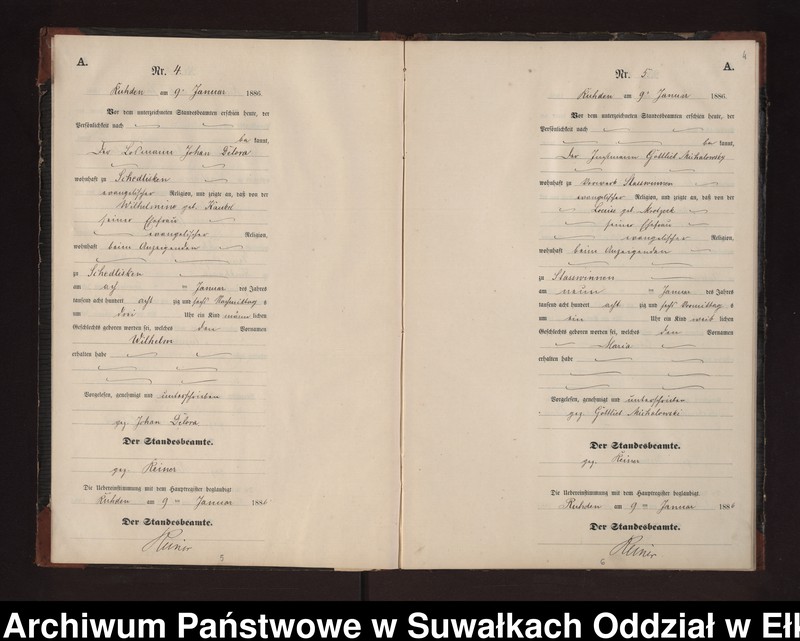 A.
Nr. 4.
Ruhden am 9t Januar 1886
Vor dem unterzeichneten Standesbeamten erschien heute, der
Persönlichkeit nach
be kannt,
Der Losmann Johan
wohnhaft zu Schedlisken
evangelischer Religion, und zeigte an, daß von der
Wilhelmine geb.
seiner Ehefrau
evangelischer Religion,
wohnhaft beim Anzeigenden
zu Schedlisken
am acht ten Januar des Jahres
tausend acht hundert acht zig und sechs Nachmittag s
um drei Uhr ein Kind männ lichen
Geschlechts geboren worden sei, welches den Vornamen
Wilhelm
erhalten habe
Vorgelesen, genehmigt und unterschrieben
gez. Johan
Der Standesbeamte.
gez. Reiner
Die Uebereinstimmung mit dem Hauptregister beglaubigt
Ruhden am 9 ten Januar 1886
Der Standesbeamte.
Reiner
5
4
A.
Nr. 5
Ruhden am 9t Januar 1886
Vor dem unterzeichneten Standesbeamten erschien heute, der
Persönlichkeit nach
be kannt,
Der Instmann Gottlieb Michalowsky
wohnhaft zu Vorwerk Stasswinnen
evangelischer Religion, und zeigte an, daß von der
Louise geb.
seiner Ehefrau
evangelischer Religion,
wohnhaft beim Anzeigenden
zu Stasswinnen
am neun ten Januar des Jahres
tausend acht hundert acht zig und sechs Vormittag s
um ein Uhr ein Kind weib lichen
Geschlechts geboren worden sei, welches den Vornamen
Maria
erhalten habe
Vorgelesen, genehmigt und unterschrieben
gez. Gottlieb Michalowski
Der Standesbeamte.
gez. Reiner
Die Uebereinstimmung mit dem Hauptregister beglaubigt
Ruhden am 9 ten Januar 1886
Der Standesbeamte.
Reiner
6
Archiwum Państwowe w Suwałkach Oddział w Eł